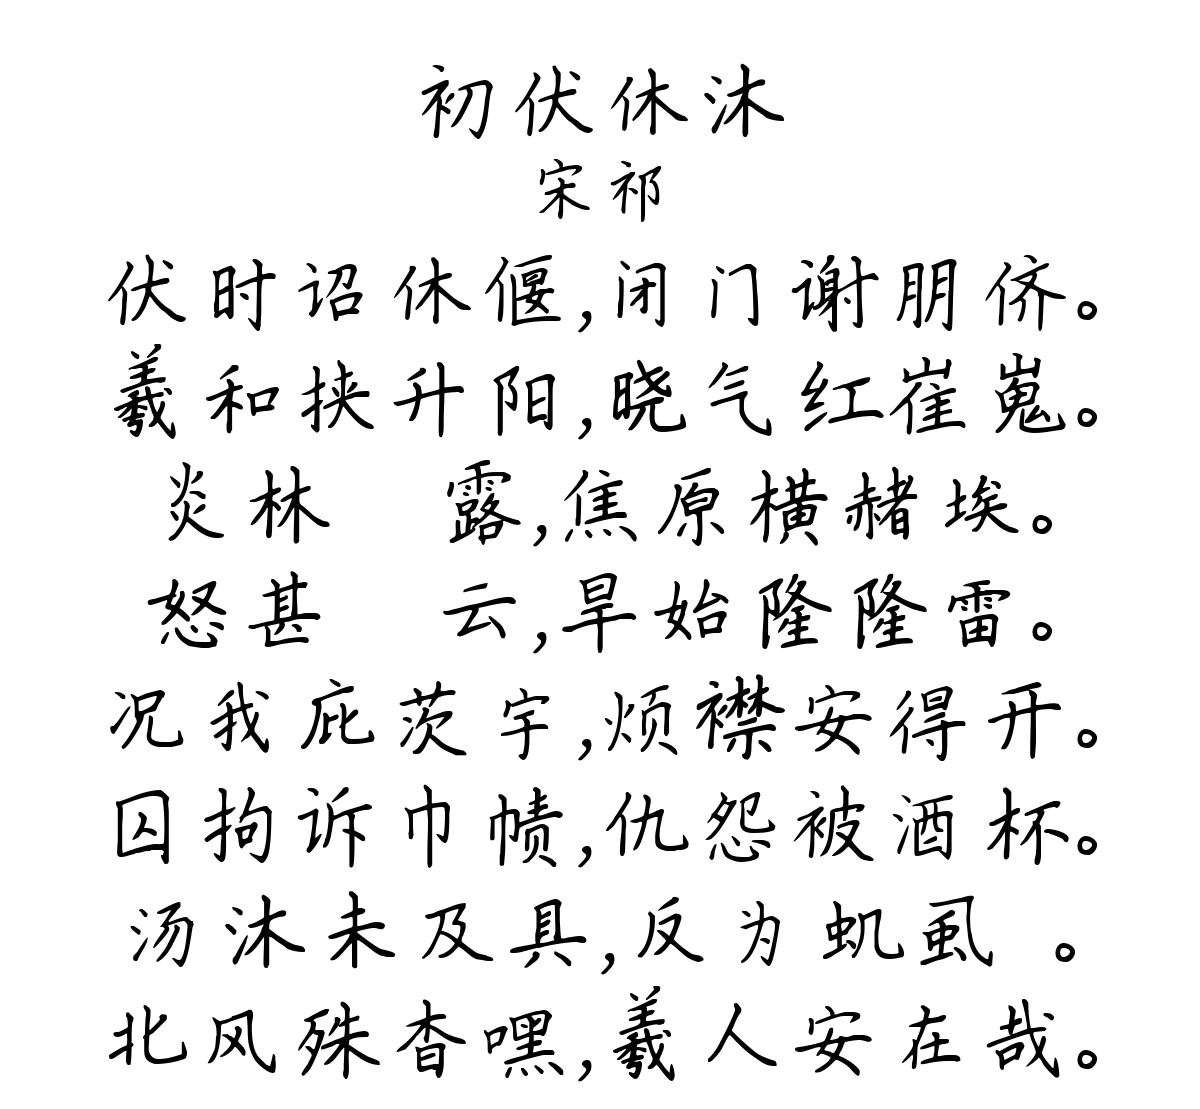 初伏休沐
宋祁
伏时诏休偃,闭门谢朋侪。
羲和挟升阳,晓气红崔嵬。
炎林 露,焦原横赭埃。
怒甚 云,旱始隆隆雷。
况我庇茨宇,烦襟安得开。
囚拘诉巾帻,仇怨被酒杯。
汤沐未及具,反为虮虱 。
北风殊杳嘿,羲人安在哉。